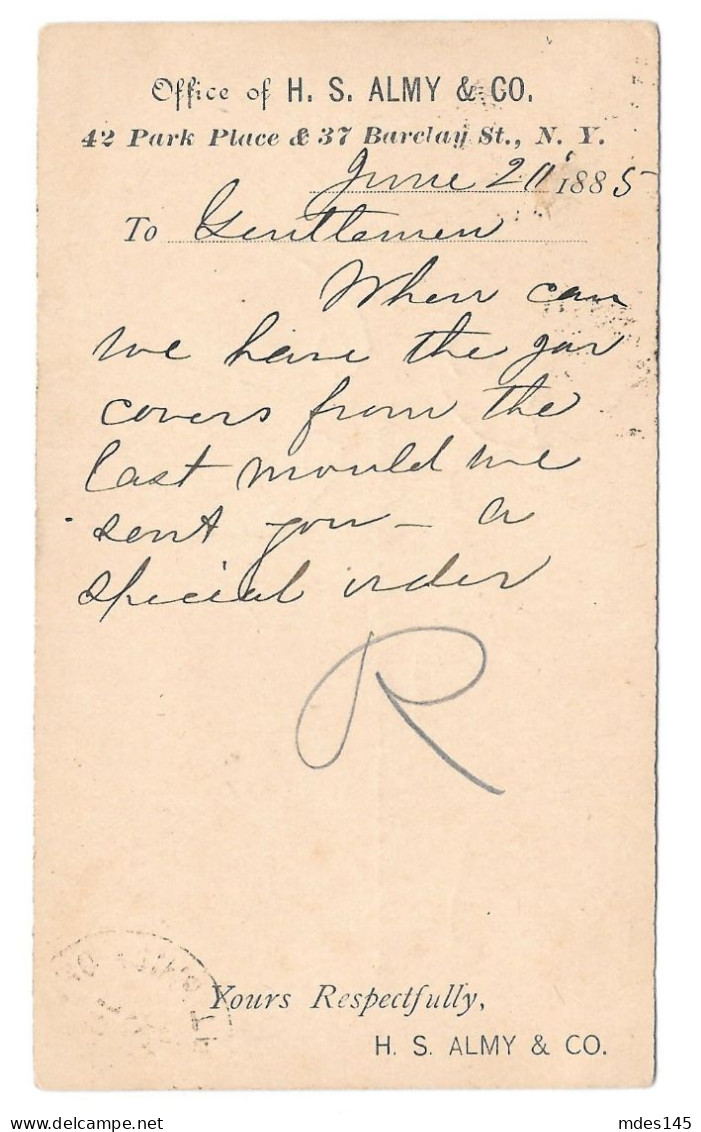 Office of H. S. ALMY & CO.
42 Park Place & 37 Barclay St., N. Y.
June 1885
To Gentlemen
When can
we have the jar
covers from the
last mould we
sent you – a
special order
R
Yours Respectfully,
H. S. ALMY & CO.
delcampe.net
mdes145